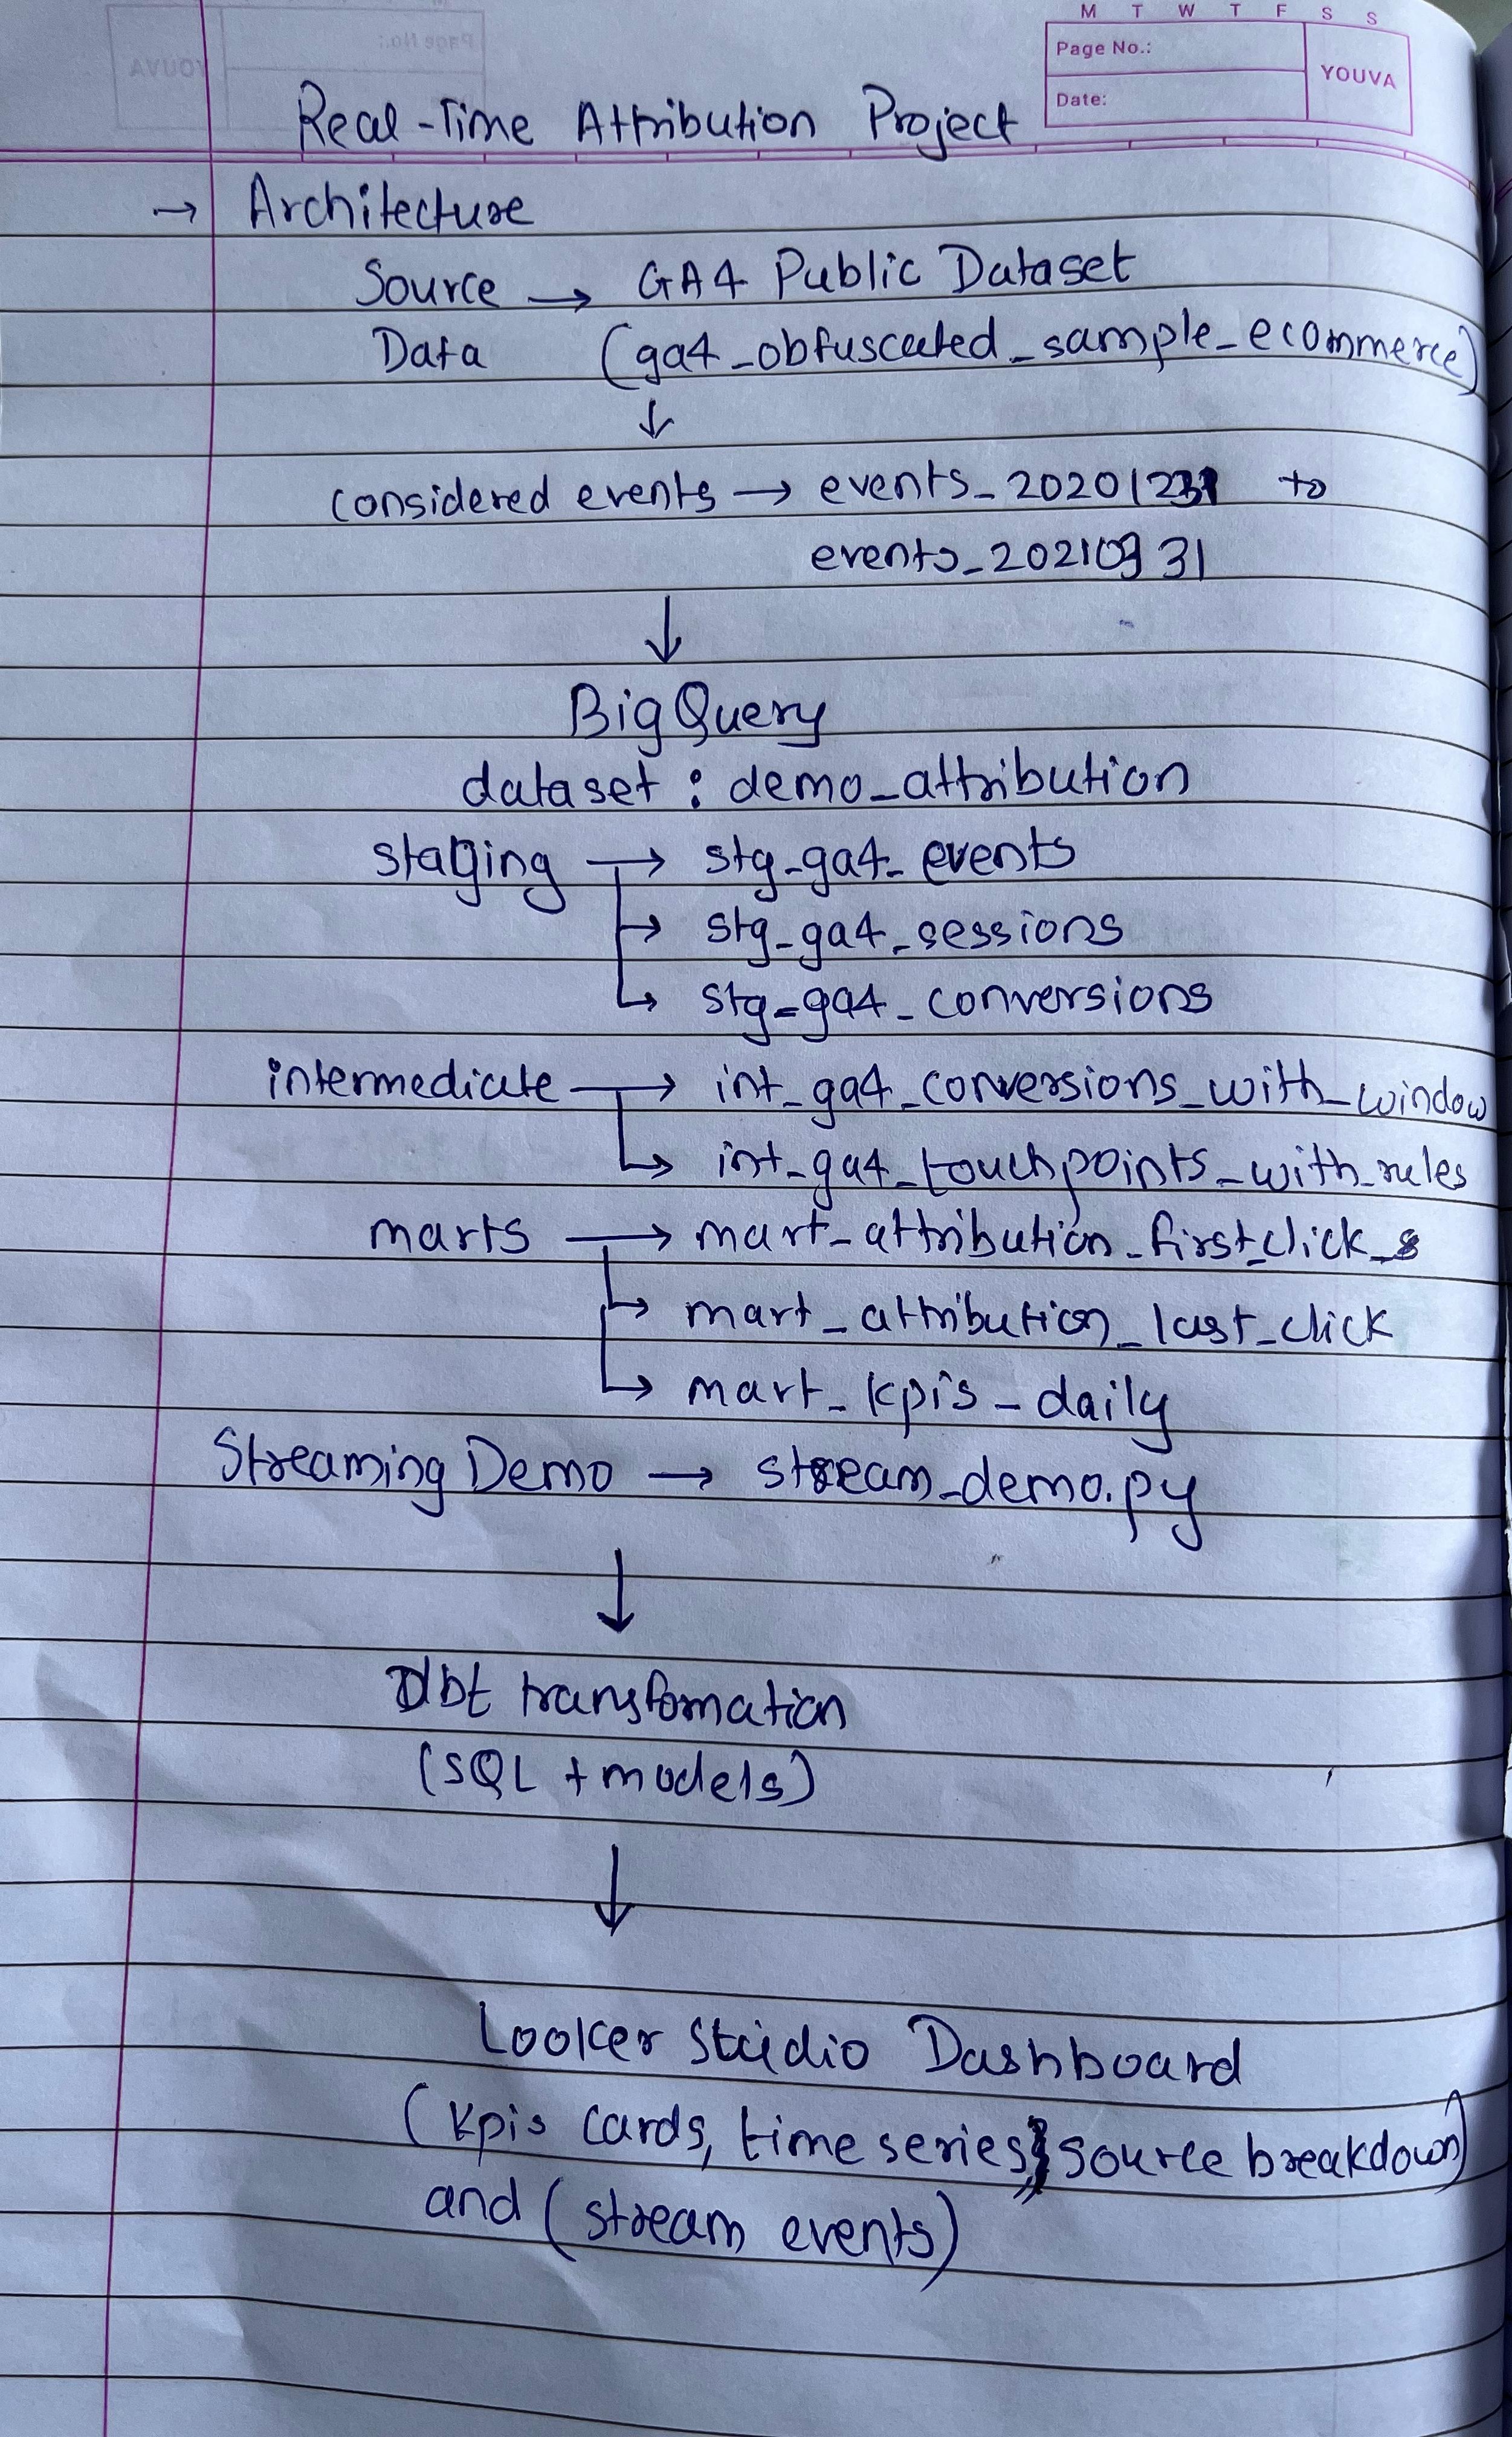 M T W T F S S
Page No.:
YOUVA
Date:
Real-Time Attribution Project
→ Architecture
Source → GA4 Public Dataset
Data (ga4_obfuscated_sample_ecommerce)
↓
considered events → events_20201231 to
events_2021 31
↓
BigQuery
dataset : demo_attribution
staging → stg_ga4_events
↳ stg_ga4_sessions
↳ stg_ga4_conversions
intermediate → int_ga4_conversions_with_window
↳ int_ga4_touchpoints_with_rules
marts → mart_attribution_first_click_s
↳ mart_attribution_last_click
↳ mart_kpis_daily
Streaming Demo → stream_demo.py
↓
Dbt transfomation
(SQL + models)
↓
Looker Studio Dashboard
(kpis cards, time series, source breakdown)
and (stream events)